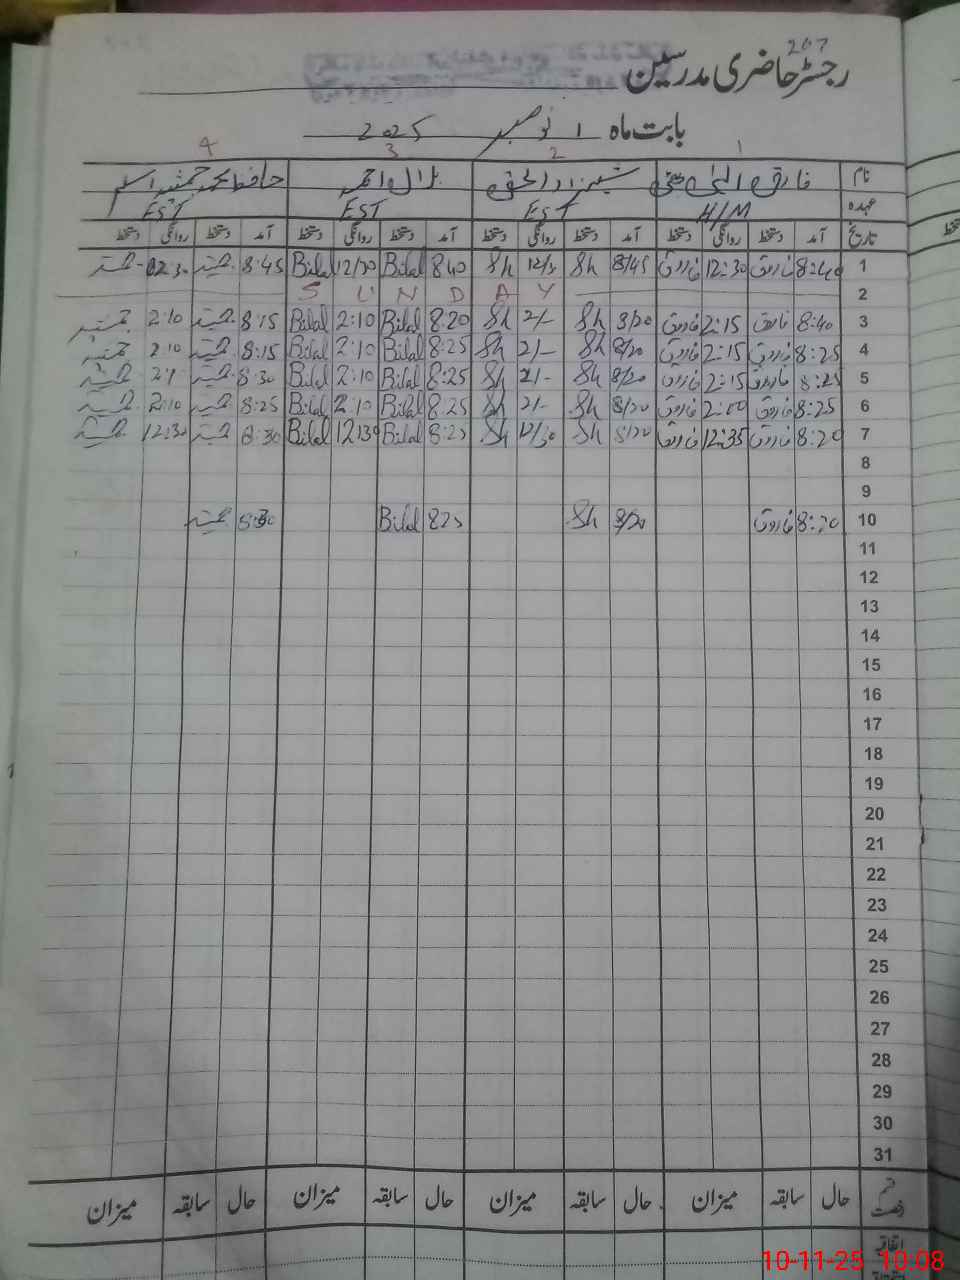 207
رجسٹر حاضری مدرسین
بابت ماہ ۱ نومبر 2025
1 2 3 4
نام فاروق الہٰی شہزاد الحق بلال احمد حافظ محمد جمشید اسلم
عہدہ H/M EST EST EST
تاریخ آمد دستخط روانگی دستخط آمد دستخط روانگی دستخط آمد دستخط روانگی دستخط آمد دستخط روانگی دستخط
1 8:40 فاروق 12:30 فاروق 8/45 Sh 12/3 Sh 840 Bilal 12/30 Bilal 8:45 جمشید 12:30 جمشید
2 SUNDAY
3 8:40 فاروق 2:15 فاروق 8/20 Sh 2/- Sh 8:20 Bilal 2:10 Bilal 8:15 جمشید 2:10 جمشید
4 8:25 فاروق 2:15 فاروق 8/20 Sh 2/- Sh 8:25 Bilal 2:10 Bilal 8:15 جمشید 2:10 جمشید
5 8:25 فاروق 2:15 فاروق 8/20 Sh 2/- Sh 8:25 Bilal 2:10 Bilal 8:30 جمشید جمشید
6 8:25 فاروق فاروق 8/20 Sh 2/- Sh 8:25 Bilal 2:10 Bilal 8:25 جمشید 2:10 جمشید
7 8:20 فاروق 12:35 فاروق 8/20 Sh 12/30 Sh 8:25 Bilal 12:30 Bilal 8:30 جمشید 12:30 جمشید
8
9
10 8:20 فاروق 8/20 Sh 825 Bilal 8:30 جمشید
11
12
13
14
15
16
17
18
19
20
21
22
23
24
25
26
27
28
29
30
31
قسم رخصت حال سابقہ میزان حال سابقہ میزان حال سابقہ میزان حال سابقہ میزان
اتفاقیہ
10-11-25 10:08